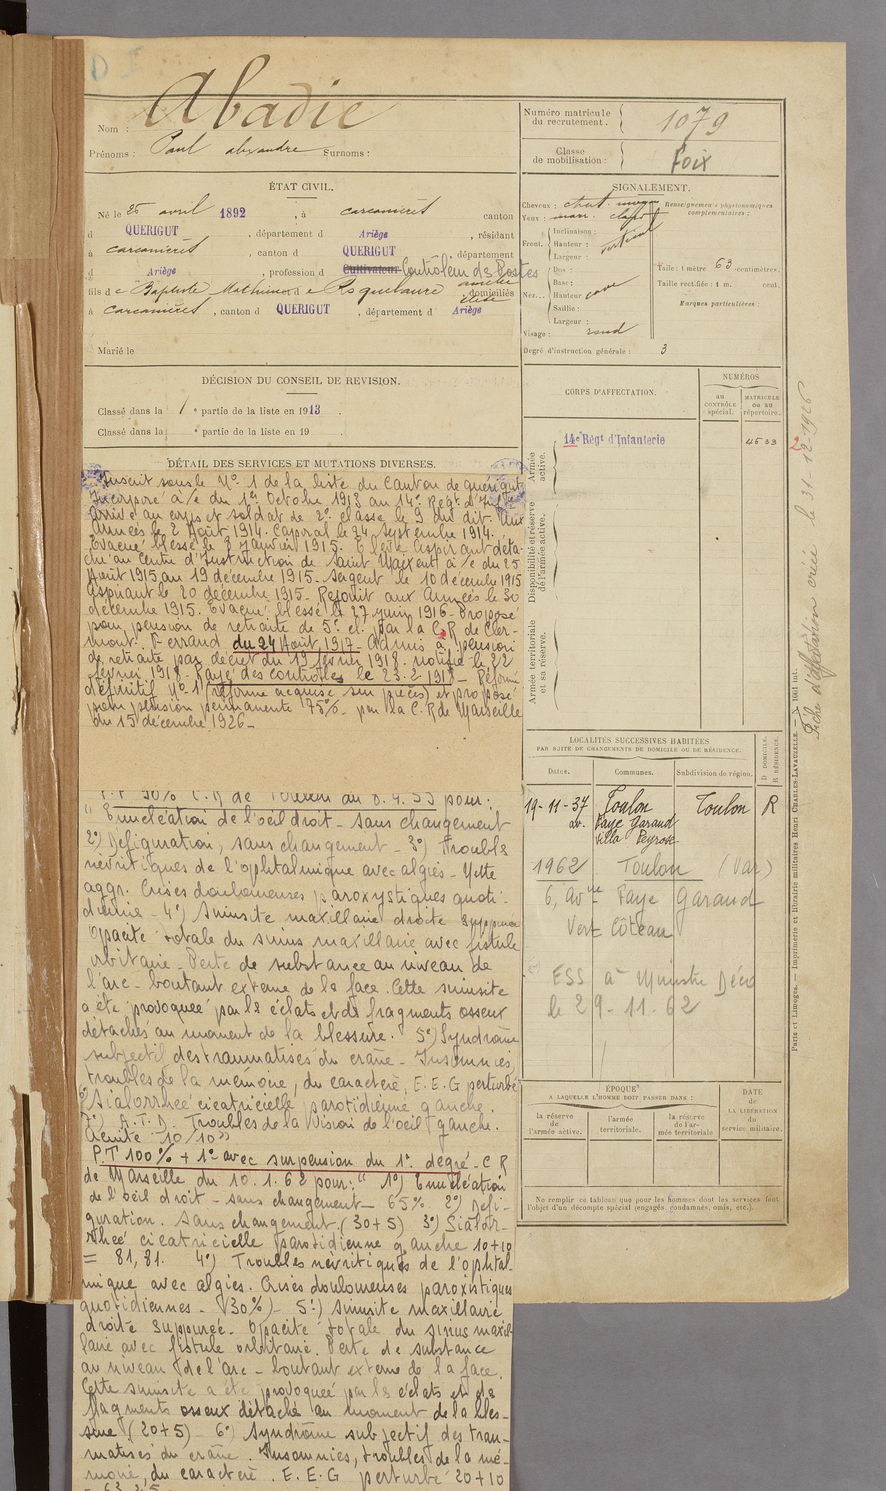 D I
Nom : Abadie
Prénoms : Paul alexandre Surnoms :
ÉTAT CIVIL.
Né le 25 avril 1892 , à carcanières canton
d QUERIGUT , département d Ariège , résidant
à carcanières , canton d QUERIGUT , département
d Ariège , profession d Cultivateur Controleur des Postes
fils de Baptiste Mathieu et de Roquelaure domiciliés
à carcanières , canton d QUERIGUT , département d Ariège
Marié le
DÉCISION DU CONSEIL DE REVISION.
Classé dans la 1 e partie de la liste en 1913 .
Classé dans la e partie de la liste en 19 .
DÉTAIL DES SERVICES ET MUTATIONS DIVERSES.
Inscrit sous le No 1 de la liste du Canton de quérigut
Incorporé à/c du 1er Octobre 1913 au 14e Regt d'Inf
Arrivé au corps et soldat de 2e classe le 9 du dit. Aux
Armées le 2 Août 1914. Caporal le 24 septembre 1914.
Evacué blessé le 8 Janvier 1915. Elève aspirant déta-
ché au Centre d'Instruction de Saint Maixent à/c du 25
Août 1915 au 19 décembre 1915. Sergent le 10 décembre 1915
aspirant le 20 décembre 1915. Rejoint aux Armées le 30
décembre 1915. Evacué blessé le 27 juin 1916. Proposé
pour pension de retraite de 5e cl. par la C.R de Cler-
mont-Ferrand du 24 Août 1917. Admis à pension
de retraite par décret du 19 février 1918. notifié le 22
février 1918. Rayé des controles le 23.2.1918 - Réformé
définitif No 1 (réforme acquise sur pièces) et proposé
pour pension permanente 75% - par la C.R de Marseille
du 15 décembre 1926 -
P.P 90% C.R de Toulon du 8.4.53 pour:
" Enucléation de l'oeil droit - sans changement
2°) Défiguration, sans changement. 3°) Troubles
névritiques de l'ophtalmique avec algies - Nette
aggr. Crises douloureuses paroxystiques quoti-
diennes - 4°) Sinusite maxillaire droite suppurée
Opacité totale du sinus maxillaire avec fistule
orbitaire - Perte de substance au niveau de
l'arc - boutant externe de la face. Cette sinusite
a été provoquée par les éclats et de fragments osseux
détachés au moment de la blessure. 5°) Syndrome
subjectif des traumatisés du crâne - Insomnies,
troubles de la mémoire, du caractère, E.E.G perturbé
6°) Sialorrhée cicatricielle parotidienne gauche.
7°) A.T.D. Troubles de la vision de l'oeil gauche.
Acuité 10/10"
P.T 100% + 1° avec suspension du 1er degré - C R
de Marseille du 10.1.62 pour: " 1°) Enucléation
de l'oeil droit - sans changement - 65%. 2°) Défi-
guration. Sans changement (30+5) 3°) Sialor-
rhée cicatricielle parotidienne gauche 10+10
= 81,81. 4°) Troubles névritiques de l'ophtal-
mique avec algies. Crises douloureuses paroxistiques
quotidiennes - (30%) - 5°) Sinusite maxillaire
droite suppurée - Opacité totale du sinus maxil-
laire avec fistule orbitaire. Perte de substance
au niveau de l'arc - boutant externe de la face.
Cette sinusite a été provoquée par les éclats et de
fragments osseux détachés au moment de la bles-
sure (20+5) - 6°) Syndrome subjectif des trau-
matisés du crâne. Insomnies, troubles de la mé-
moire, du caractère. E.E.G perturbé 20+10
Numéro matricule
du recrutement. 1079
Classe
de mobilisation : Foix
SIGNALEMENT.
Cheveux : chat. moyen
Yeux : marr. clair
Front. Inclinaison :
Hauteur : vertical
Largeur :
Nez... Dos :
Base :
Hauteur cave
Saillie :
Largeur :
Visage : rond
Renseignements physionomiques
complémentaires :
Taille : 1 mètre 63 centimètres.
Taille rectifiée : 1 m. cent.
Marques particulières :
Degré d'instruction générale : 3
CORPS D'AFFECTATION.
NUMÉROS
AU CONTRÔLE spécial.
MATRICULE OU AU répertoire.
Armée active.
14e Régt d'Infanterie 4533
Disponibilité et réserve de l'armée active.
Armée territoriale et sa réserve.
LOCALITÉS SUCCESSIVES HABITÉES
PAR SUITE DE CHANGEMENTS DE DOMICILE OU DE RÉSIDENCE.
D DOMICILE. R RÉSIDENCE.
Dates. Communes. Subdivision de région.
19-11-37 Toulon Toulon R
av. Faye Garaud
Villa Peyrose
1962 Toulon (Var)
6, Avnue Faye Garaud
Vert Côteau
ESS à Ministre Déco
le 29-11-62
ÉPOQUE
A LAQUELLE L'HOMME DOIT PASSER DANS :
la réserve de l'armée active.
l'armée territoriale.
la réserve de l'armée territoriale
DATE
de
LA LIBÉRATION
du
service militaire.
Ne remplir ce tableau que pour les hommes dont les services font
l'objet d'un décompte spécial (engagés, condamnés, omis, etc.).
Paris et Limoges. — Imprimerie et librairie militaires Henri CHARLES-LAVAUZELLE.
Fiche d'affectation créée le 31-12-1926